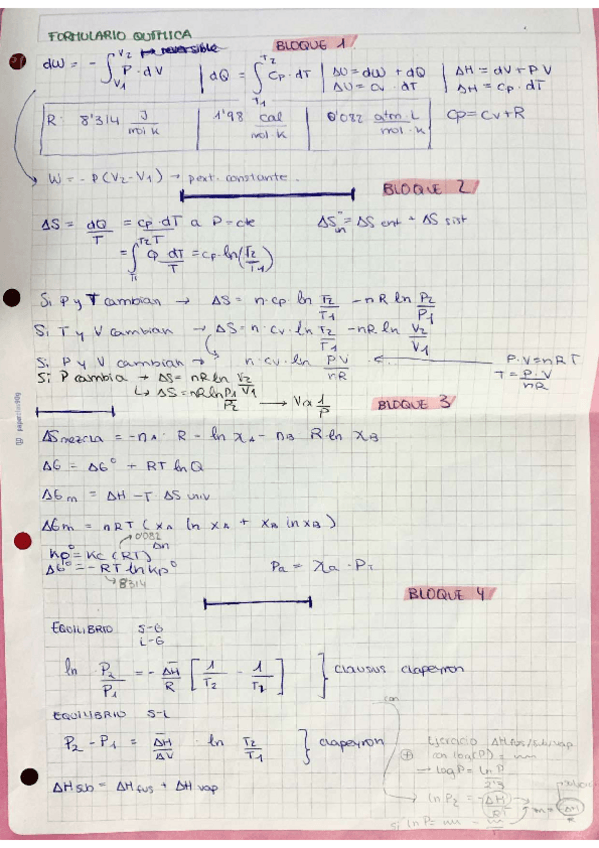 FORMULARIO QUÍMICA
BLOQUE 1
dW = - ∫V1 V2 P · dV reversible | dQ = ∫T1 T2 Cp · dT | ΔU = dW + dQ | ΔH = dV + P V
ΔU = Cv · dT | ΔH = Cp · dT
R: 8'314 J/mol·K | 1'98 cal/mol·K | 0'082 atm·L/mol·K | Cp = Cv + R
W = - P (V2 - V1) → pext. constante.
BLOQUE 2
ΔS = dQ/T = Cp · dT/T a P = cte
ΔSun = ΔS ent + ΔS sist
= ∫T1 T2 Cp dT/T = Cp · ln (T2/T1)
Si P y T cambian → ΔS = n · Cp · ln T2/T1 - nR ln P2/P1
Si T y V cambian → ΔS = n · Cv · ln T2/T1 - nR ln V2/V1
Si P y V cambian → n · Cv · ln PV/nR ← P·V = nRT
T = P·V/nR
Si P cambia → ΔS = nR ln V2/V1
↳ ΔS = nR ln P1/P2 → V α 1/P
BLOQUE 3
ΔSmezcla = -nA · R - ln XA - nB R ln XB
ΔG = ΔG° + RT ln Q
ΔGm = ΔH - T ΔS univ
ΔGm = nRT (XA ln XA + XB ln XB)
Kp° = Kc (RT)^Δn → 0'082
ΔG° = - RT ln Kp° → 8'314
Pa = Xa · PT
BLOQUE 4
EQUILIBRIO S-G
L-G
ln P2/P1 = - ΔH/R [1/T2 - 1/T1] } CLAUSIUS CLAPEYRON
EQUILIBRIO S-L
P2 - P1 = ΔH/ΔV · ln T2/T1 } CLAPEYRON
ΔHsub = ΔHfus + ΔHvap
con
Ejercicio ΔHfus/sub/vap
con log(P) = mm
→ log P = ln P/2'3
→ ln P2 = - ΔH/RT